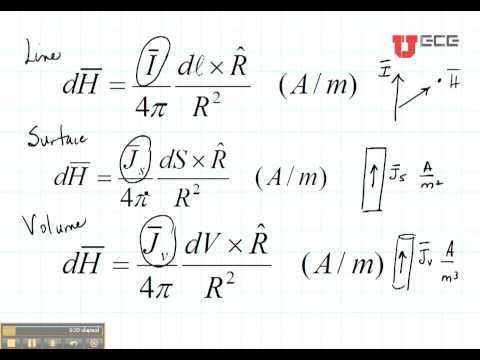 U ECE
Line
dH̅ = I̅/4π dℓ × R̂/R² (A/m) I̅ H̅
Surface
dH̅ = J̅ₛ/4π dS × R̂/R² (A/m) J̅ₛ A/m²
Volume
dH̅ = J̅ᵥ/4π dV × R̂/R² (A/m) J̅ᵥ A/m³